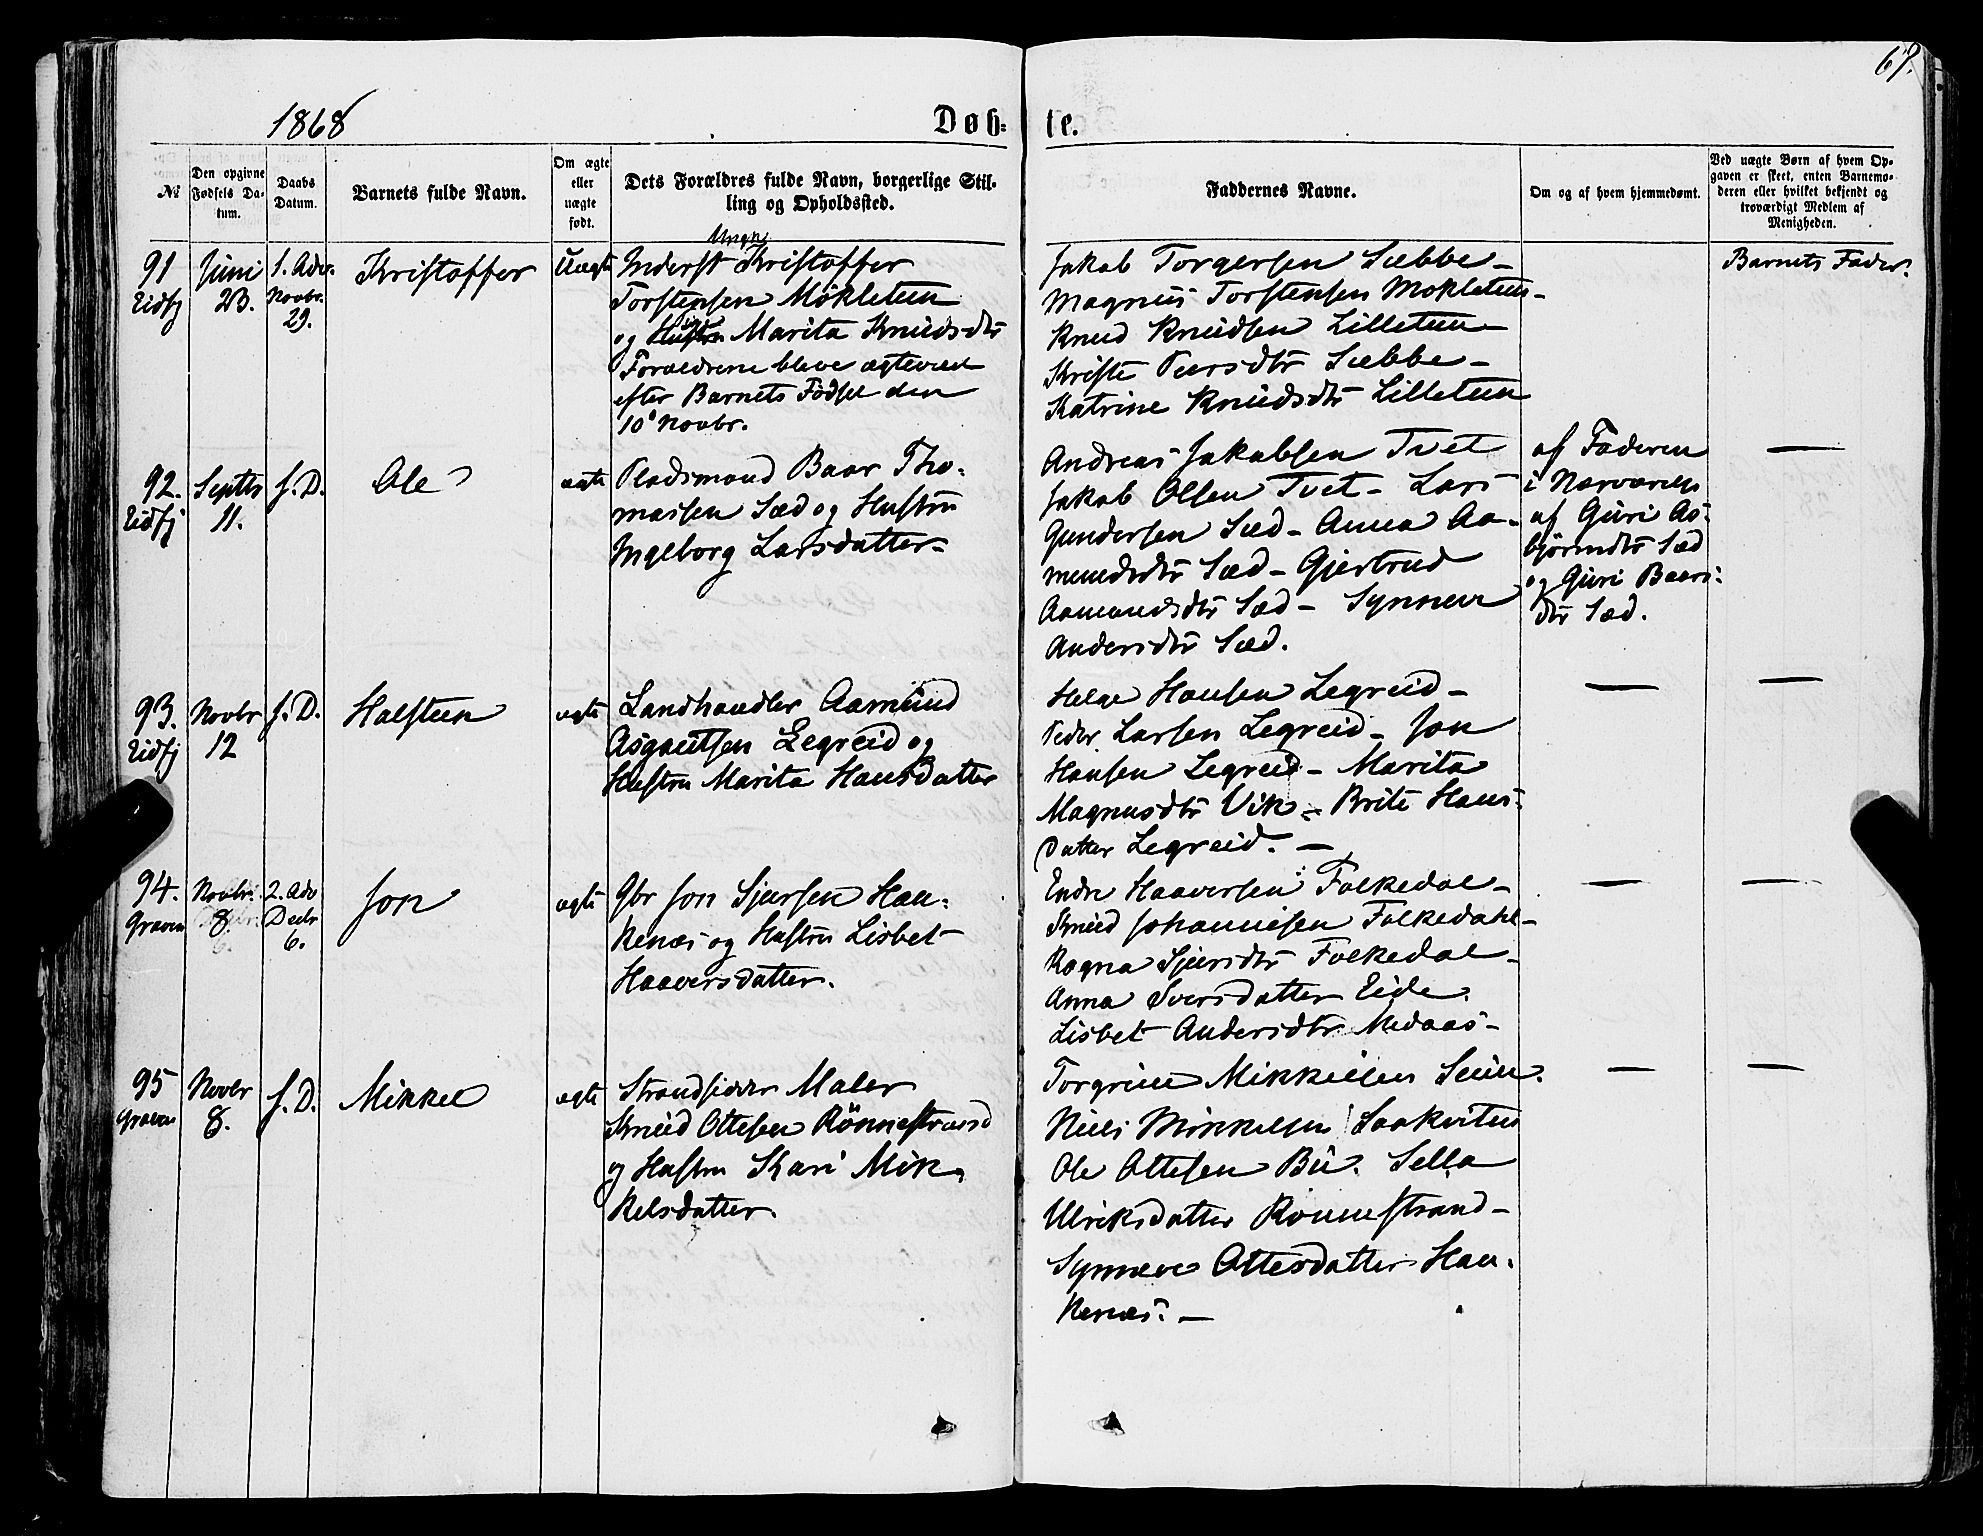 67.
1868
Døb- te.
№
Den opgivne Fødsels Datum.
Daabs Datum.
Barnets fulde Navn.
Om ægte eller uægte født.
Dets Forældres fulde Navn, borgerlige Stilling og Opholdssted.
Faddernes Navne.
Om og af hvem hjemmedømt.
Ved uægte Børn af hvem Opgaven er skeet, enten Barnemoderen eller hvilket bekjendt og troværdigt Medlem af Menigheden.
91
Eidfj
Juni
23.
1. Adv.
Novbr.
29.
Kristoffer
Uægte
Ungk
Inderst Kristoffer
Torstensen Møkletun
og Marita Knudsdtr
Forældrene bleve ægteviede
efter Barnets Fødsel den
10 Novbr.
Jakob Torgersen Sæbbe-
Magnus Torstensen Mökletun-
Knud Knudsen Lilletun
Kriste Peersdtr Sæbbe-
Katrine Knudsdtr Lilletun
Barnets Fader.
92.
Eidfj
Septbr
11.
s. D.
Ole
ægte
Pladsmand Baar Tho-
massen Sæd og Hustru
Ingeborg Larsdatter-
Andreas Jakobsen Tvet
Jakob Olsen Tvet- Lars
Gundersen Sæd- Anna Aa-
mundsdtr Sæd- Gjertrud
Aamundsdtr Sæd- Synneve
Andersdtr Sæd.
af Faderen
i Nærværelse
af Guri As-
bjørnsdtr Sæd
og Guri Baars-
dtr Sæd.
—
93.
Eidfj
Novbr
12
s. D.
Halsten
ægte
Landhandler Aamund
Asgautsen Legreid og
Hustru Marita Hansdatter
Helge Hansen Legreid-
Peder Larsen Legreid- Jon
Hansen Legreid- Marita
Magnusdtr Vik- Brite Hans-
datter Legreid.-
—
—
94.
Graven
Novbr.
8.
2. Adv
Decbr
6.
Jon
ægte
Gbr Jon Sjursen Hau-
kenæs og Hustru Lisbet
Haaversdatter.
Endre Haaversen Folkedal-
Knud Johannesen Folkedahl-
Ragna Sjursdtr Folkedal-
Anna Iversdatter Eide.
Lisbet Andersdtr Medaas-
—
—
95
Graven
Novbr
8.
s. D.
Mikkel
ægte
Strandsidder Maler
Knud Ottesen Rönnestrand
og Hustru Kari Mik-
kelsdatter.
Torgrim Mikkelsen
Niels Mikkelsen Saakvitne
Ole Ottesen Bu. Sella
Ulriksdatter Rönnestrand-
Synneve Ottesdatter Hau-
kenæs.-
—
—